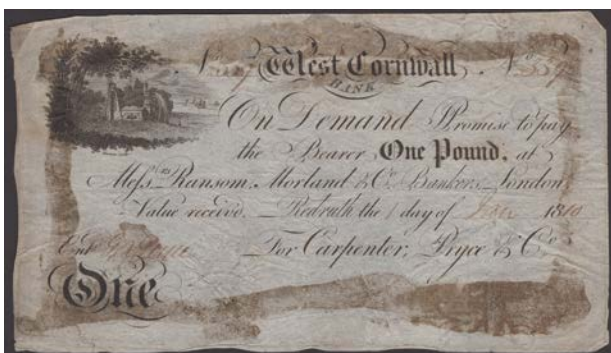 No West Cornwall No
BANK
On Demand Promise to pay
the Bearer One Pound, at
Messrs Ransom, Morland & Co Bankers London
Value receiv'd. Redruth the 1 day of 1810
Entd For Carpenter, Pryce & Co
One